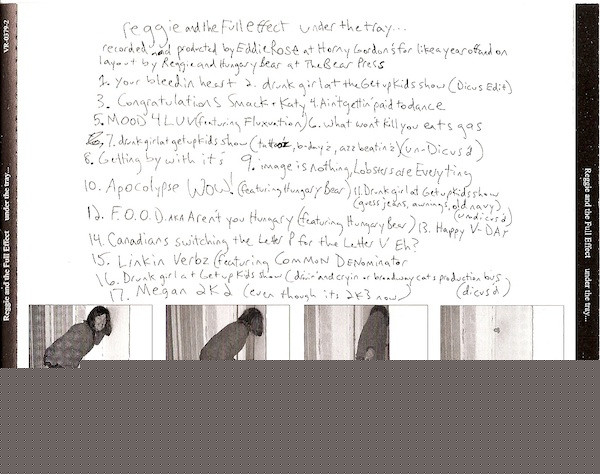 reggie and the Full effect under the tray...
recorded and producted by Eddie Rose at Horny Gordon's for like a year off and on
layout by Reggie and Hungry Bear at The Bear Press
1. Your bleedin heart 2. drunk girl at the Get up Kids show (Dicus Edit)
3. Congratulations Smack + Katy 4. Aint gettin' paid to dance
5. MOOD 4 LUV (featuring Fluxuation) 6. what won't kill you eats gas
7. drunk girl at get up kids show (tattooz, b-day'z, azz beatin'z) (un-Dicus'd)
8. Getting by with it's 9. image is nothing, Lobsters are Everyting
10. Apocolypse WOW! (featuring Hungary Bear) 11. Drunk girl at Get up Kids show
(guess jeans, awnings, old navy)
(undicus'd)
12. F.O.O.D. AKA Aren't you Hungary (featuring Hungary Bear) 13. Happy V-DAY
14. Canadians switching the Letter P for the Letter V Eh?
15. Linkin Verbz (featuring COMMON DENOMINATOR
16. Drunk girl at Get up Kids show (drivin' and cryin or broadway cats production bus)
(dicus'd)
17. Megan 2K2 (even though its 2K3 now)
VR-0379-2
Reggie and the Full Effect under the tray...
Reggie and the Full Effect under the tray...